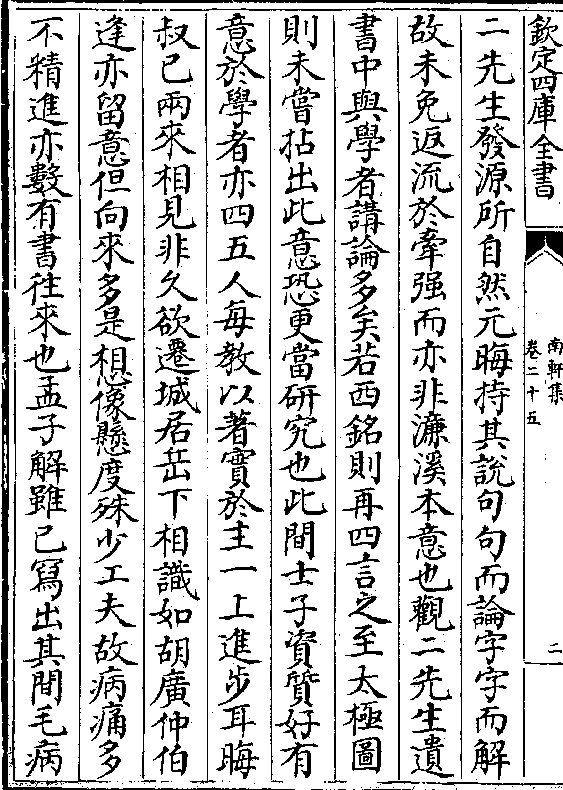 欽定四庫全書
南軒集
卷二十五
二
二先生發源所自然元晦持其說句句而論字字而解
故未免返流於牽强而亦非濂溪本意也觀二先生遺
書中與學者講論多矣若西銘則再四言之至太極圖
則未嘗拈出此意恐更當研究也此間士子資質好有
意於學者亦四五人每教以著實於主一上進步耳晦
叔已兩來相見非久欲遷城居岳下相識如胡廣仲伯
逢亦留意但向來多是想像懸度殊少工夫故病痛多
不精進亦數有書往來也孟子解雖已寫出其間毛病